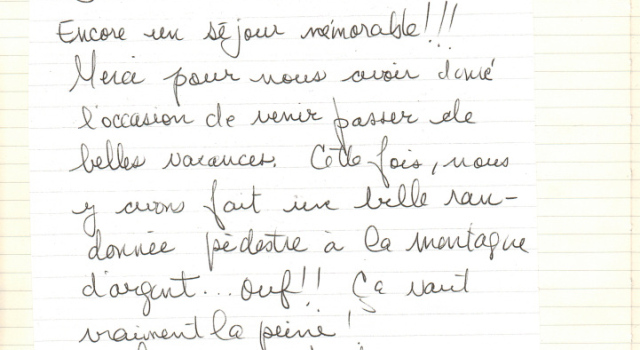 Encore un séjour mémorable!!!
Merci pour nous avoir donné
l'occasion de venir passer de
belles vacances. Cette fois, nous
y avons fait une belle ran-
donnée pédestre à la montagne
d'argent... ouf!! Ça vaut
vraiment la peine!